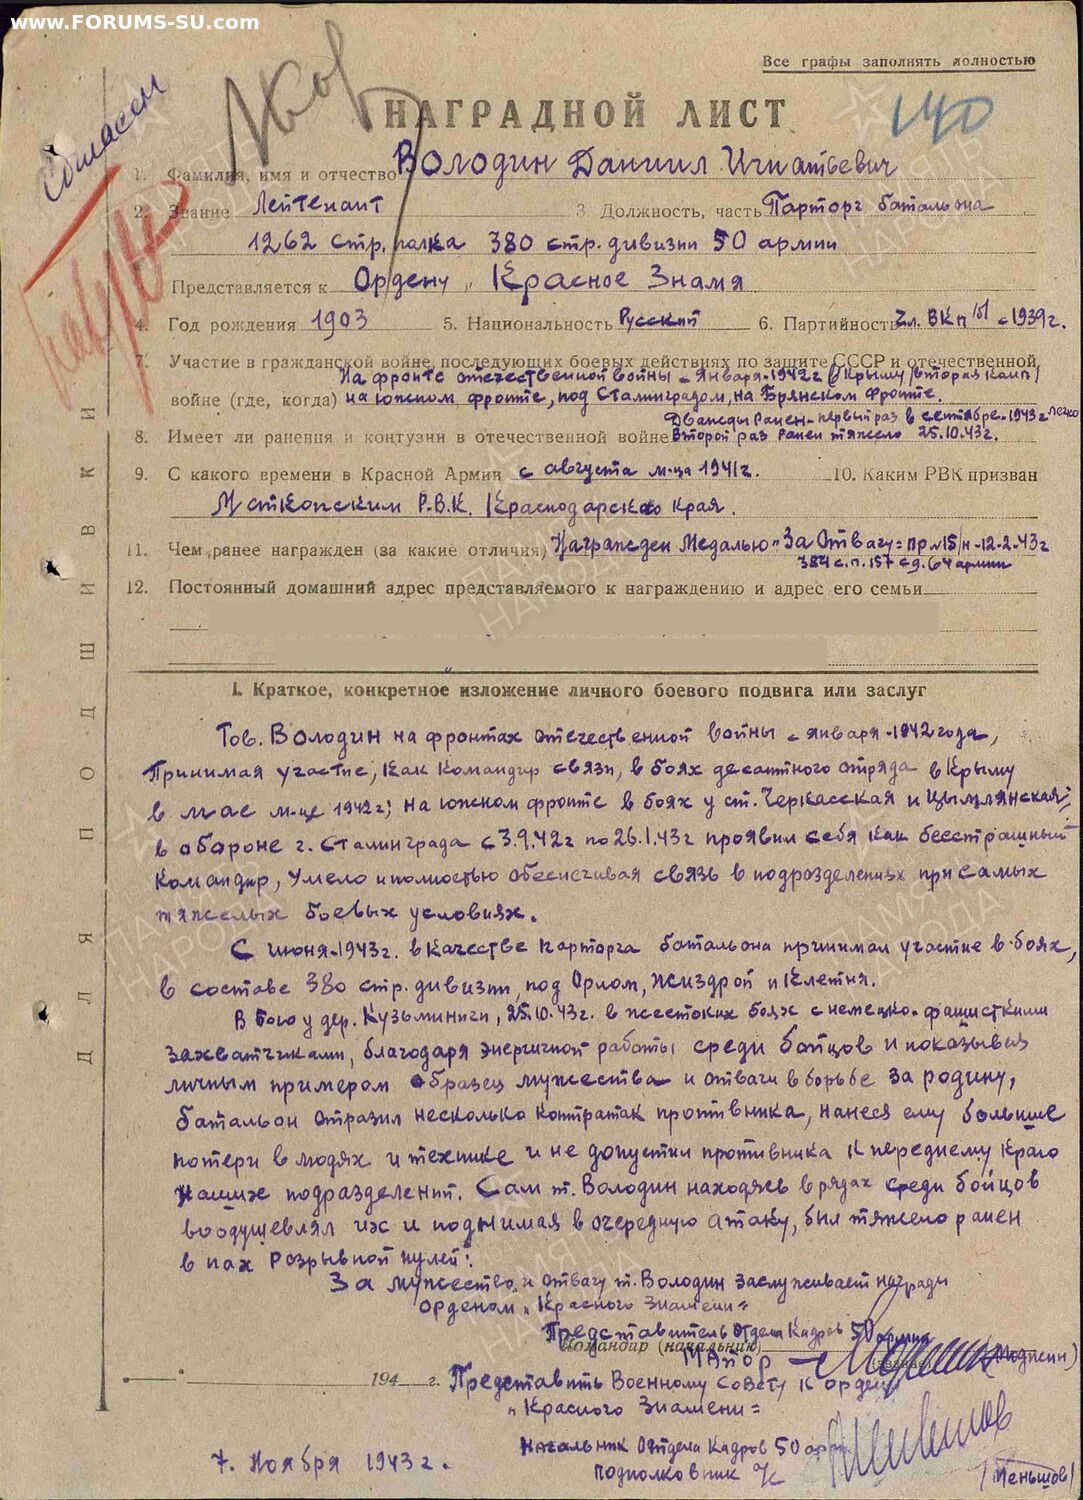 www.FORUMS-SU.com
Все графы заполнять полностью
Согласен
140
НАГРАДНОЙ ЛИСТ
1. Фамилия, имя и отчество Володин Даниил Игнатьевич
2. Звание Лейтенант 3. Должность, часть Парторг батальона
1262 стр. полка 380 стр. дивизии 50 армии
Представляется к Ордену „Красное Знамя
4. Год рождения 1903 5. Национальность Русский 6. Партийность Чл. ВКП/б/ с 1939г.
7. Участие в гражданской войне, последующих боевых действиях по защите СССР и отечественной
На фронте отечественной войны с января-1942г в Крыму /вторая камп/
войне (где, когда) на южном фронте, под Сталинградом, на Брянском фронте.
Дважды ранен-первый раз в сентябре-1943г легко
8. Имеет ли ранения и контузии в отечественной войне Второй раз ранен тяжело 25.10.43г.
9. С какого времени в Красной Армии с августа м-ца 1941г. 10. Каким РВК призван
Р.В.К. Краснодарского края.
11. Чем ранее награжден (за какие отличия) Награжден Медалью „За Отвагу" пр №15/н-12-2-43г
384 с.п. 157 сд. 64 армии
12. Постоянный домашний адрес представляемого к награждению и адрес его семьи
I. Краткое, конкретное изложение личного боевого подвига или заслуг
Тов. Володин на фронтах отечественной войны с января-1942 года,
Принимая участие, как командир связи, в боях десантного отряда в Крыму
в мае м-це 1942г; на южном фронте в боях у ст. Черкасская и Цымлянская;
в обороне г. Сталинграда с 3.9.42г по 26.1.43г проявил себя как бесстрашный
командир, умело и полностью обеспечивая связь в подразделениях при самых
тяжелых боевых условиях.
С июня-1943г. в качестве парторга батальона принимал участие в боях,
в составе 380 стр. дивизии, под Орлом, Жиздрой и Клетня.
В бою у дер. Кузьминичи, 25.10.43г. в жестоких боях с немецко-фашисткими
захватчиками, благодаря энергичной работы среди бойцов и показывая
личным примером образец мужества и отваги в борьбе за родину,
батальон отразил несколько контратак противника, нанеся ему большие
потери в людях и технике и не допустил противника к переднему краю
наших подразделений. Сам т. Володин находясь в рядах среди бойцов
воодушевлял их и поднимая в очередную атаку, был тяжело ранен
в пах разрывной пулей.
За мужество и отвагу т. Володин заслуживает награды
орденом „Красного Знамени"
Представитель Отдела Кадров 50 армии
Командир (начальник)
Майор
(звание) (подпись)
194 г. Представить Военному Совету к ордену
„Красного Знамени"
Начальник Отдела Кадров 50 арм.
7. Ноября 1943г. подполковник
/Меньшов/
ДЛЯ ПОДШИВКИ
ПАМЯТЬ НАРОДА